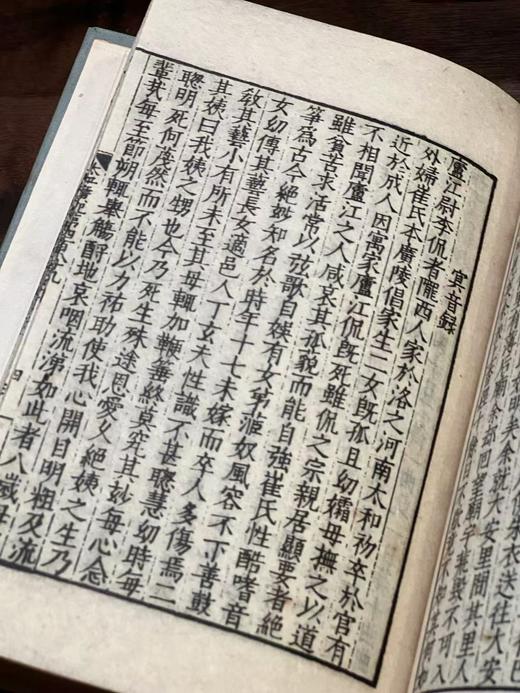 朱衣送往大安
大安里間其里人
不可入
㝠音録
廬江尉李侃者隴西人家於洛之河南太和初卒於官有
外婦崔氏本廣陵倡家生二女既孤且幼孀母撫之以道
近於成人因寓家廬江侃既死雖侃之宗親居顯要者絕
不相聞廬江之人咸哀其孤藐而能自強崔氏性酷嗜音
雖貧苦求活常以弦歌自娛有女弟菃奴風容不下善鼓
箏為古今絕妙知名於時年十七未嫁而卒人多傷焉二
女幼傳其藝長女適邑人丁玄夫性識不甚聰慧幼時每
敎其藝小有所未至其母輒加鞭箠終莫究其妙每心念
其姨曰我姨之甥也今乃死生殊途恩愛久絕姨之生乃
聰明死何蔑然而不能以力祐助使我心開目明粗及流
輩我每至節朔輒舉觴酹地哀咽流涕如此者八歲母